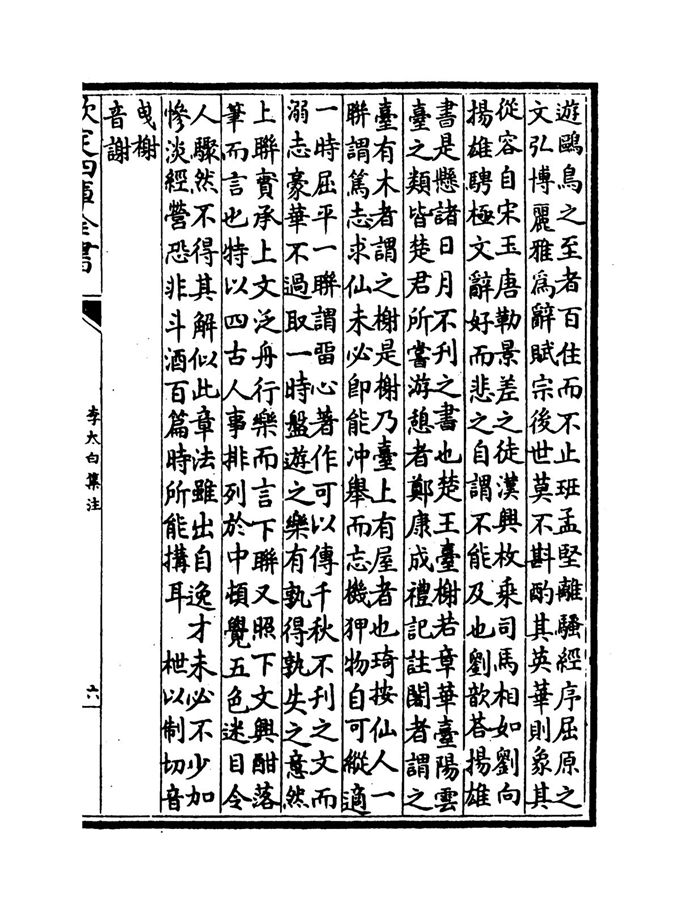 遊鷗鳥之至者百住而不止班孟堅離騷經序屈原之
文弘博麗雅為辭賦宗後世莫不斟酌其英華則象其
從容自宋玉唐勒景差之徒漢興枚乘司馬相如劉向
揚雄騁極文辭好而悲之自謂不能及也劉歆荅揚雄
書是懸諸日月不刊之書也楚王臺榭若章華臺陽雲
臺之類皆楚君所嘗游憩者鄭康成禮記註闍者謂之
臺有木者謂之榭是榭乃臺上有屋者也琦按仙人一
聯謂篤志求仙未必即能冲舉而忘機狎物自可縱適
一時屈平一聯謂畱心著作可以傳千秋不刊之文而
溺志豪華不過取一時盤遊之樂有孰得孰失之意然
上聯實承上文泛舟行樂而言下聯又照下文興酣落
筆而言也特以四古人事排列於中頓覺五色迷目令
人驟然不得其解似此章法雖出自逸才未必不少加
慘淡經營恐非斗酒百篇時所能搆耳 枻以制切音
曵榭
音謝
欽定四庫全書
李太白集注
六